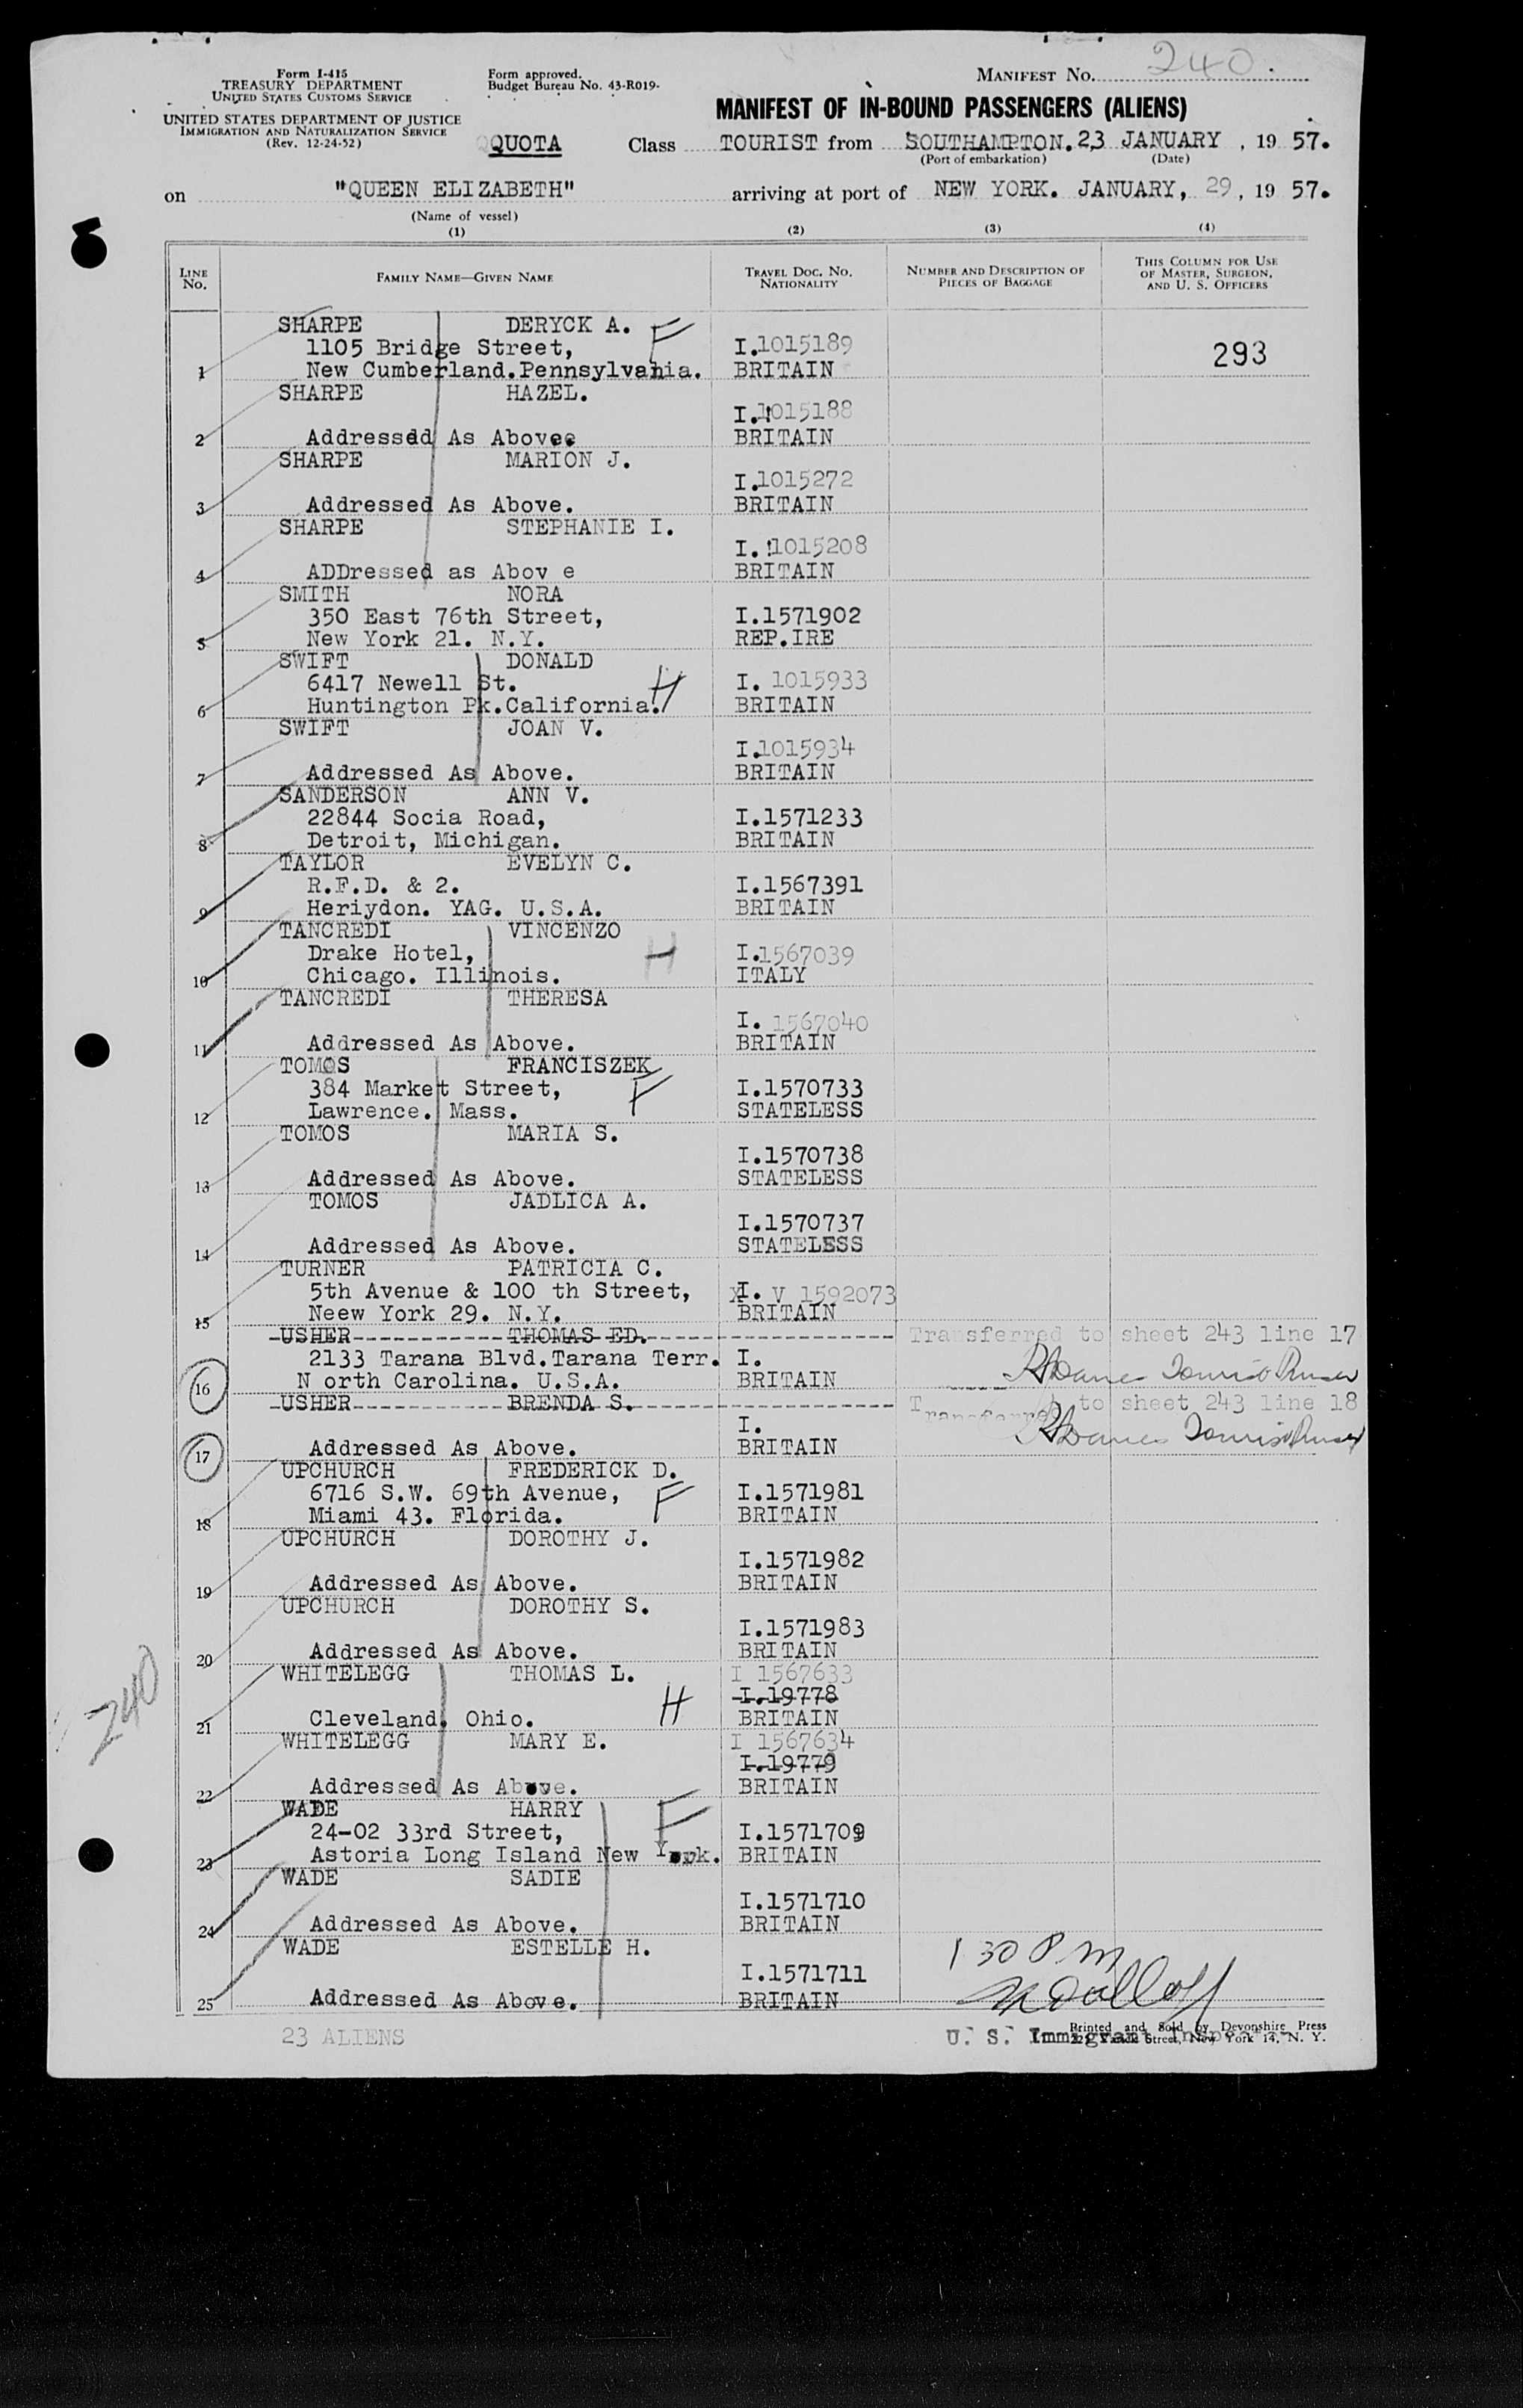 Form I-415
TREASURY DEPARTMENT
UNITED STATES CUSTOMS SERVICE
UNITED STATES DEPARTMENT OF JUSTICE
IMMIGRATION AND NATURALIZATION SERVICE
(Rev. 12-24-52)
Form approved.
Budget Bureau No. 43-R019-
MANIFEST NO. 240.
MANIFEST OF IN-BOUND PASSENGERS (ALIENS)
QUOTA Class TOURIST from SOUTHAMPTON. 23 JANUARY, 19 57.
(Port of embarkation) (Date)
on "QUEEN ELIZABETH" arriving at port of NEW YORK. JANUARY, 29, 19 57.
(Name of vessel)
(1) (2) (3) (4)
LINE NO. FAMILY NAME—GIVEN NAME TRAVEL DOC. NO. NATIONALITY NUMBER AND DESCRIPTION OF PIECES OF BAGGAGE THIS COLUMN FOR USE OF MASTER, SURGEON, AND U. S. OFFICERS
SHARPE DERYCK A. F
1105 Bridge Street, I.1015189 293
1 New Cumberland.Pennsylvania. BRITAIN
SHARPE HAZEL.
I.1015188
2 Addressed As Above BRITAIN
SHARPE MARION J.
I.1015272
3 Addressed As Above. BRITAIN
SHARPE STEPHANIE I.
I.1015208
4 ADDressed as Abov e BRITAIN
SMITH NORA
350 East 76th Street, I.1571902
5 New York 21. N.Y. REP.IRE
SWIFT DONALD
6417 Newell St. H I. 1015933
6 Huntington Pk.California. BRITAIN
SWIFT JOAN V.
I.1015934
7 Addressed As Above. BRITAIN
SANDERSON ANN V.
22844 Socia Road, I.1571233
8 Detroit, Michigan. BRITAIN
TAYLOR EVELYN C.
R.F.D. & 2. I.1567391
9 Heriydon. YAG. U.S.A. BRITAIN
TANCREDI VINCENZO
Drake Hotel, H I.1567039
10 Chicago. Illinois. ITALY
TANCREDI THERESA
I. 1567040
11 Addressed As Above. BRITAIN
TOMOS FRANCISZEK
384 Market Street, F I.1570733
12 Lawrence. Mass. STATELESS
TOMOS MARIA S.
I.1570738
13 Addressed As Above. STATELESS
TOMOS JADLICA A.
I.1570737
14 Addressed As Above. STATELESS
TURNER PATRICIA C.
5th Avenue & 100 th Street, I. V 1592073
15 Neew York 29. N.Y. BRITAIN
USHER THOMAS ED. Transferred to sheet 243 line 17
2133 Tarana Blvd.Tarana Terr. I.
16 N orth Carolina. U.S.A. BRITAIN
USHER BRENDA S. Transferred to sheet 243 line 18
I.
17 Addressed As Above. BRITAIN
UPCHURCH FREDERICK D.
6716 S.W. 69th Avenue, F I.1571981
18 Miami 43. Florida. BRITAIN
UPCHURCH DOROTHY J.
I.1571982
19 Addressed As Above. BRITAIN
UPCHURCH DOROTHY S.
I.1571983
20 Addressed As Above. BRITAIN
WHITELEGG THOMAS L. I 1567633
H I.19778
21 Cleveland. Ohio. BRITAIN
WHITELEGG MARY E. I 1567634
I.19779
22 Addressed As Above. BRITAIN
WADE HARRY
24-02 33rd Street, F I.1571709
23 Astoria Long Island New York. BRITAIN
WADE SADIE
I.1571710
24 Addressed As Above. BRITAIN
WADE ESTELLE H. 1 30 P m
I.1571711
25 Addressed As Above. BRITAIN
240
23 ALIENS
U. S. Immigrant Inspector
Printed and Sold by Devonshire Press
Street, New York 14, N. Y.